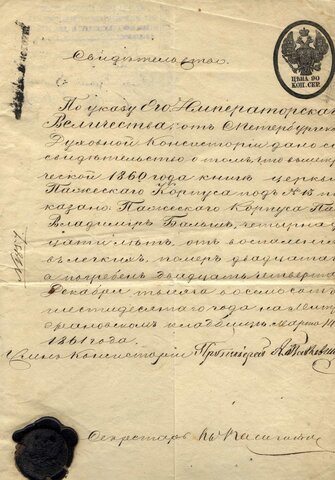 ЦѢНА 90
КОП. СЕР.
Свидѣтельство.
По указу Его Императорска
Величества, отъ С.Петербургс
Духовной Консисторіи дано с
свидѣтельство о томъ, что въ метри
ческой 1860 года книгѣ церкви
Пажескаго Корпуса подъ № 13 по
казано: Пажескаго Корпуса Па
Владиміръ четырнад
цати лѣтъ, отъ воспаленія
въ легкихъ, померъ двадцать
а погребенъ двадцать четверта
Декабря тысяча восемьсотъ
шестидесятаго года на Мит
рофановскомъ кладбищѣ. Марта
1861 года.
Членъ Консисторіи Протоіерей
Секретарь